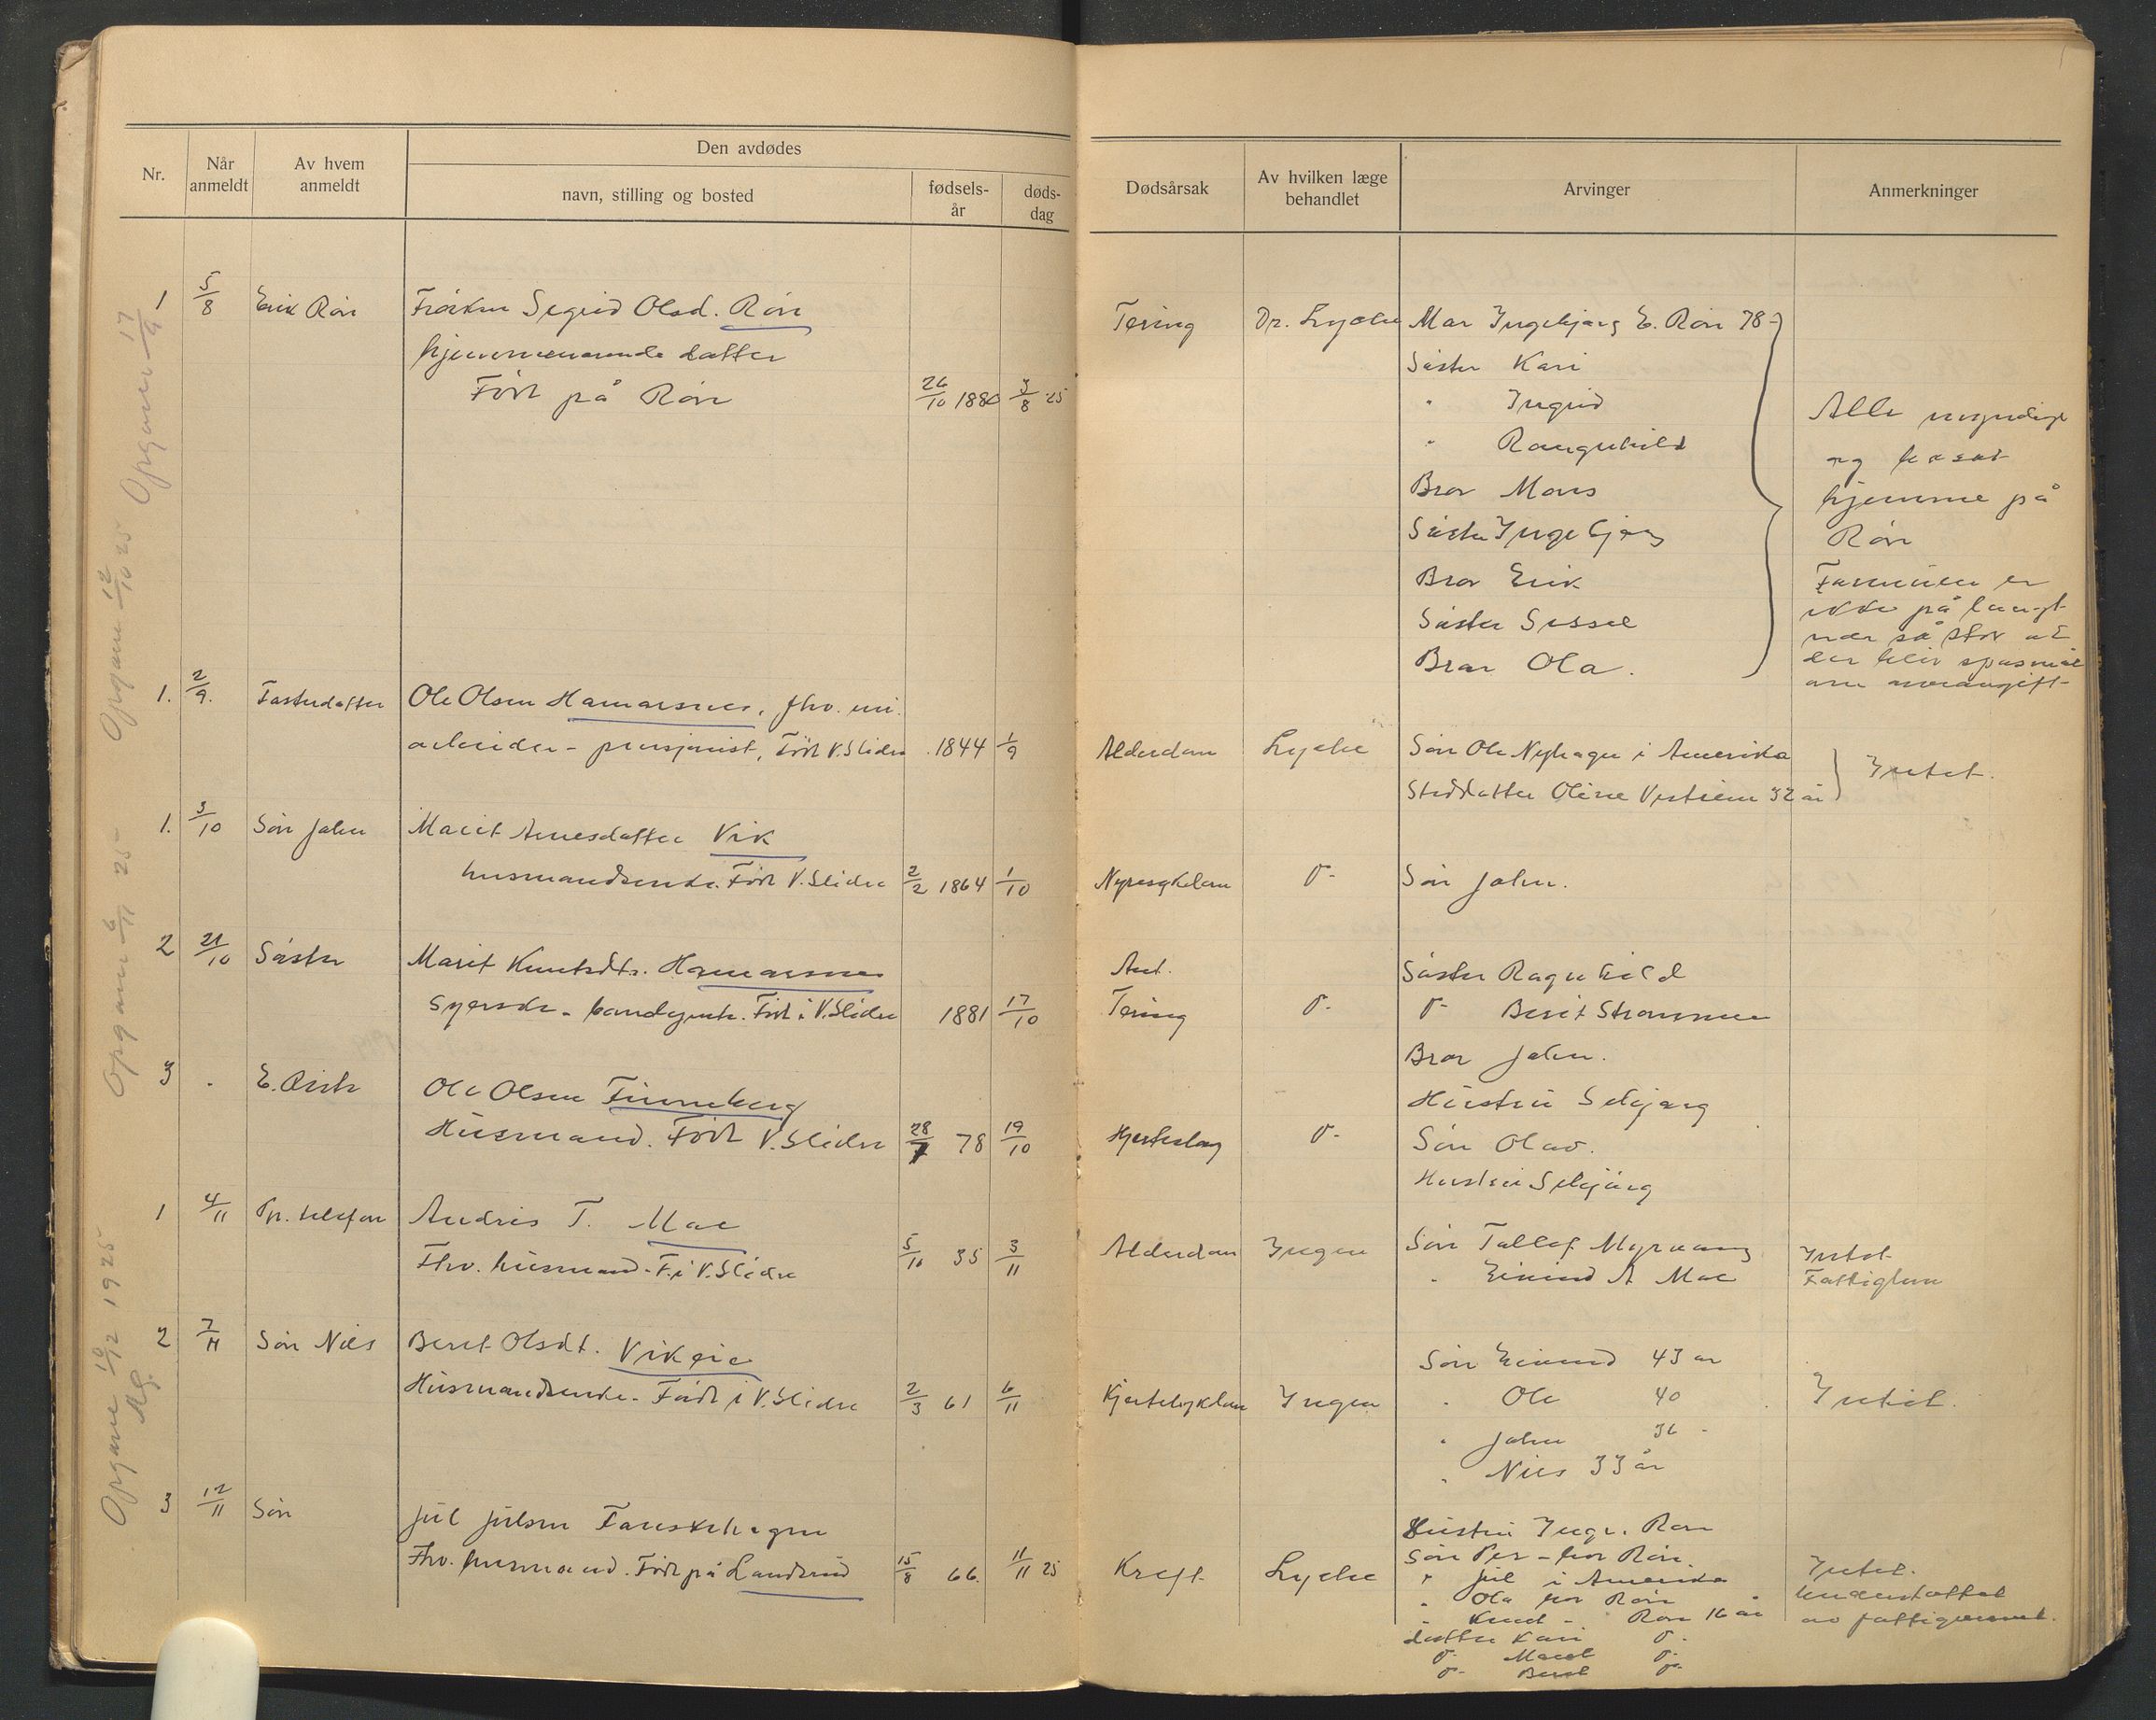 Nr.
Når anmeldt
Av hvem anmeldt
Den avdødes
navn, stilling og bosted
fødsels-år
døds-dag
Dødsårsak
Av hvilken læge behandlet
Arvinger
Anmerkninger
Opgaver 17/9
1 5/8 Erik Røn Frøken Sigrid Olsd. Røn
hjemmeværende datter
Født på Røn 26/10 1880 3/8 25
Tering Dr. Lyche Mor Ingebjørg E. Røn 78
Søster Kari
" Ingrid
" Rangnhild
Bror Mons
Søster Ingebjørg
Bror Erik
Søster Sissel
Bror Ola.
Alle myndige
og bosat
hjemme på
Røn
Formuen er
ikke på langt
nær så stor at
der blir spørsmål
om arveavgift
Opgave 12/10 25
1. 2/9. Fosterdatter Ole Olsen Hamarsnes, fhv.
arbeider - pensjonist, Født V. Slidre 1844 1/9
Alderdom Lyche Søn Ole Nyhagen i Amerika
Steddatter Oline Vestrem 32 år
Intet.
Opgave 6/11 25
1. 3/10 Søn John Marit Arnesdatter Vik
husmandsenke. Født V. Slidre 2/2 1864 1/10
Nyresykdom Søn John.
2 21/10 Søster Marit Knutsdtr. Hamarsnes
Syerske. Født i V. Slidre 1881 17/10
Tering
Søster Ragnhild
Berit Strømmen
Bror John.
Hustru Sebjørg
3 E. Ole Olsen Finneberg
Husmand. Født V. Slidre 28/7 78 19/10
Hjerteslag
Søn Olav.
Hustru Sebjørg
Opgave 10/12 1925
1 4/11 Pr. telefon Andris T. Moe
Fhv. husmand. F. i V. Slidre 5/10 35 3/11
Alderdom Ingen Søn Tollef Myrvang
" Eivind A Moe
Intet
Fattiglem
2 7/11 Søn Nils Berit Olsdt. Vikeie
Husmandsenke. Født i V. Slidre 2/3 61 6/11
Hjertesykdom Ingen
Søn Eivind 43 år
" Ole 40
" John 36
" Nils 33 år
Intet.
3 12/11 Søn Jul Julsen Fauskehagen
Fhv. husmand. Født på Landsrud 15/8 66. 11/11 25
Kreft Lyche
Hustru Ingr. Røn
Søn Per - hos Røn.
" Jul i Amerika
" Ola hos Røn
" Knud - Røn 16 år
datter Kari
Marit
Berit
Intet.
Understøttet
av fattigvæsenet.